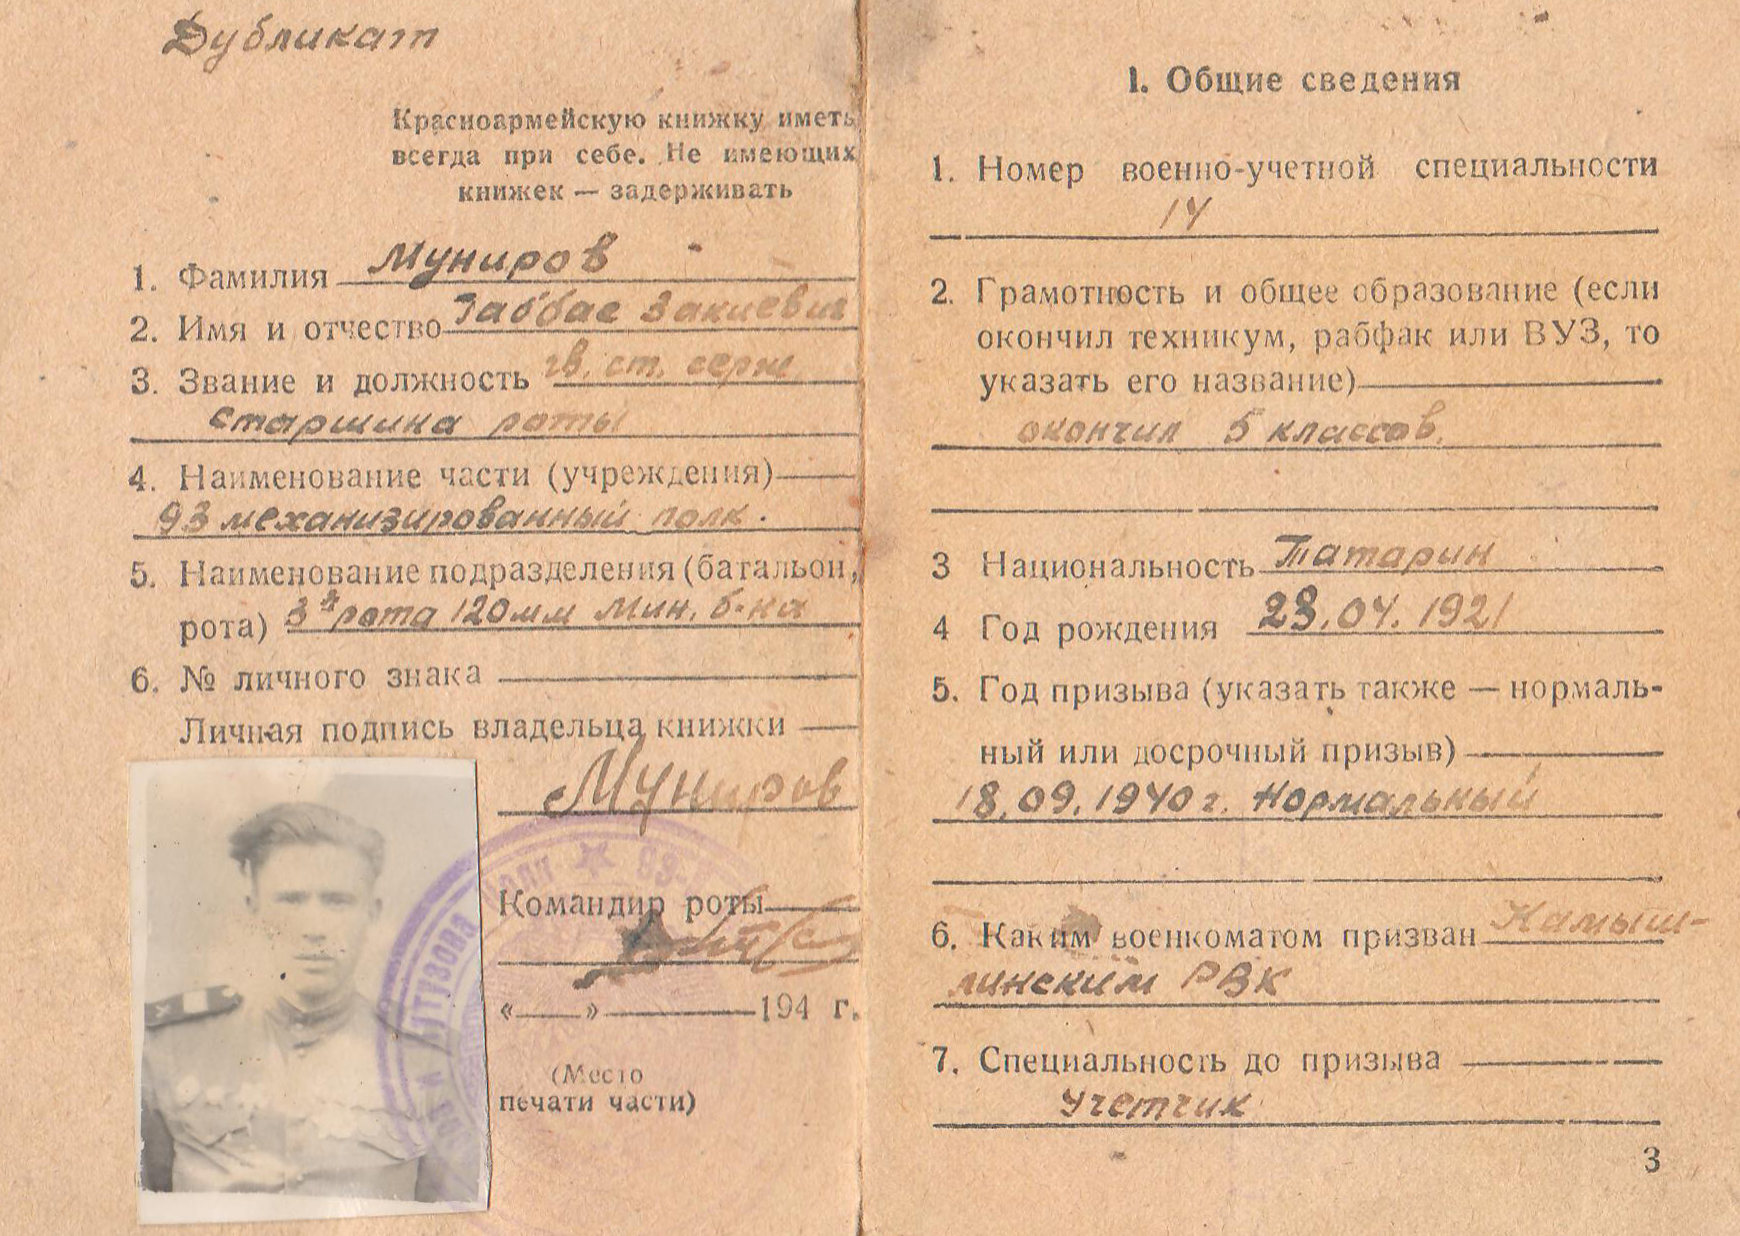 Дубликат
Красноармейскую книжку иметь
всегда при себе. Не имеющих
книжек — задерживать
1. Фамилия Муниров
2. Имя и отчество Габбас Закиевич
3. Звание и должность гв. ст. серж.
старшина роты
4. Наименование части (учреждения)
93 механизированный полк.
5. Наименование подразделения (батальон,
рота) 3я рота 120мм Мин. б-на
6. № личного знака
Личная подпись владельца книжки
Муниров
Командир роты
« » 194 г.
(Место
печати части)
1. Общие сведения
1. Номер военно-учетной специальности
14
2. Грамотность и общее образование (если
окончил техникум, рабфак или ВУЗ, то
указать его название)
окончил 5 классов.
3 Национальность Татарин
4 Год рождения 23.04.1921
5. Год призыва (указать также — нормаль-
ный или досрочный призыв)
18.09.1940 г. Нормальный
6. Каким военкоматом призван Камыш-
линским РВК
7. Специальность до призыва
Учетчик
3